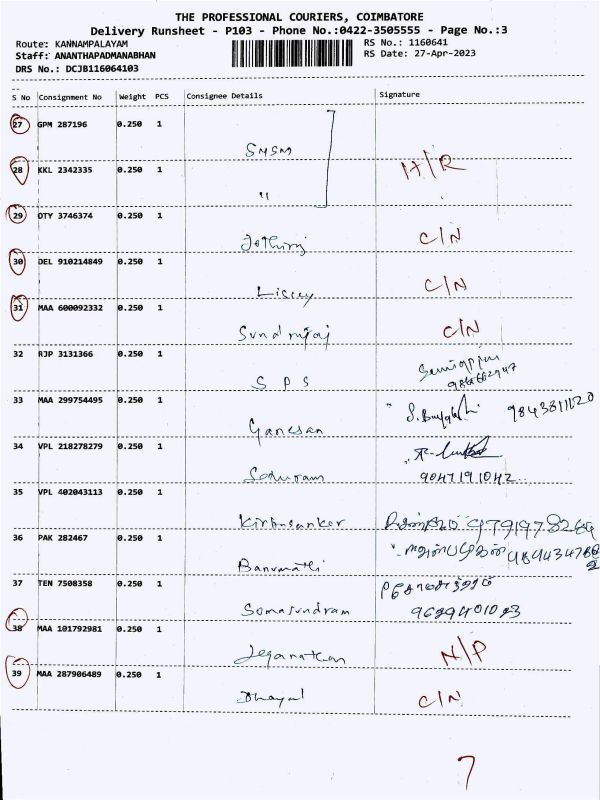 THE PROFESSIONAL COURIERS, COIMBATORE
Delivery Runsheet - P103 - Phone No.:0422-3505555 - Page No.:3
Route: KANNAMPALAYAM RS No.: 1160641
Staff: ANANTHAPADMANABHAN RS Date: 27-Apr-2023
DRS No.: DCJB116064103
S No Consignment No Weight PCS Consignee Details Signature
27 GPM 287196 0.250 1
SMSM
28 KKL 2342335 0.250 1 H/R
"
29 OTY 3746374 0.250 1
Jothiraj C/N
30 DEL 910214849 0.250 1
C/N
31 MAA 600092332 0.250 1
C/N
32 RJP 3131366 0.250 1
SPS
33 MAA 299754495 0.250 1
Ganesan
34 VPL 218278279 0.250 1
9047191042
35 VPL 402043113 0.250 1
36 PAK 282467 0.250 1
Banumathi
37 TEN 7508358 0.250 1
Somasundram
38 MAA 101792981 0.250 1
Jeganathan N/P
39 MAA 287906489 0.250 1
Dhayal C/N
7